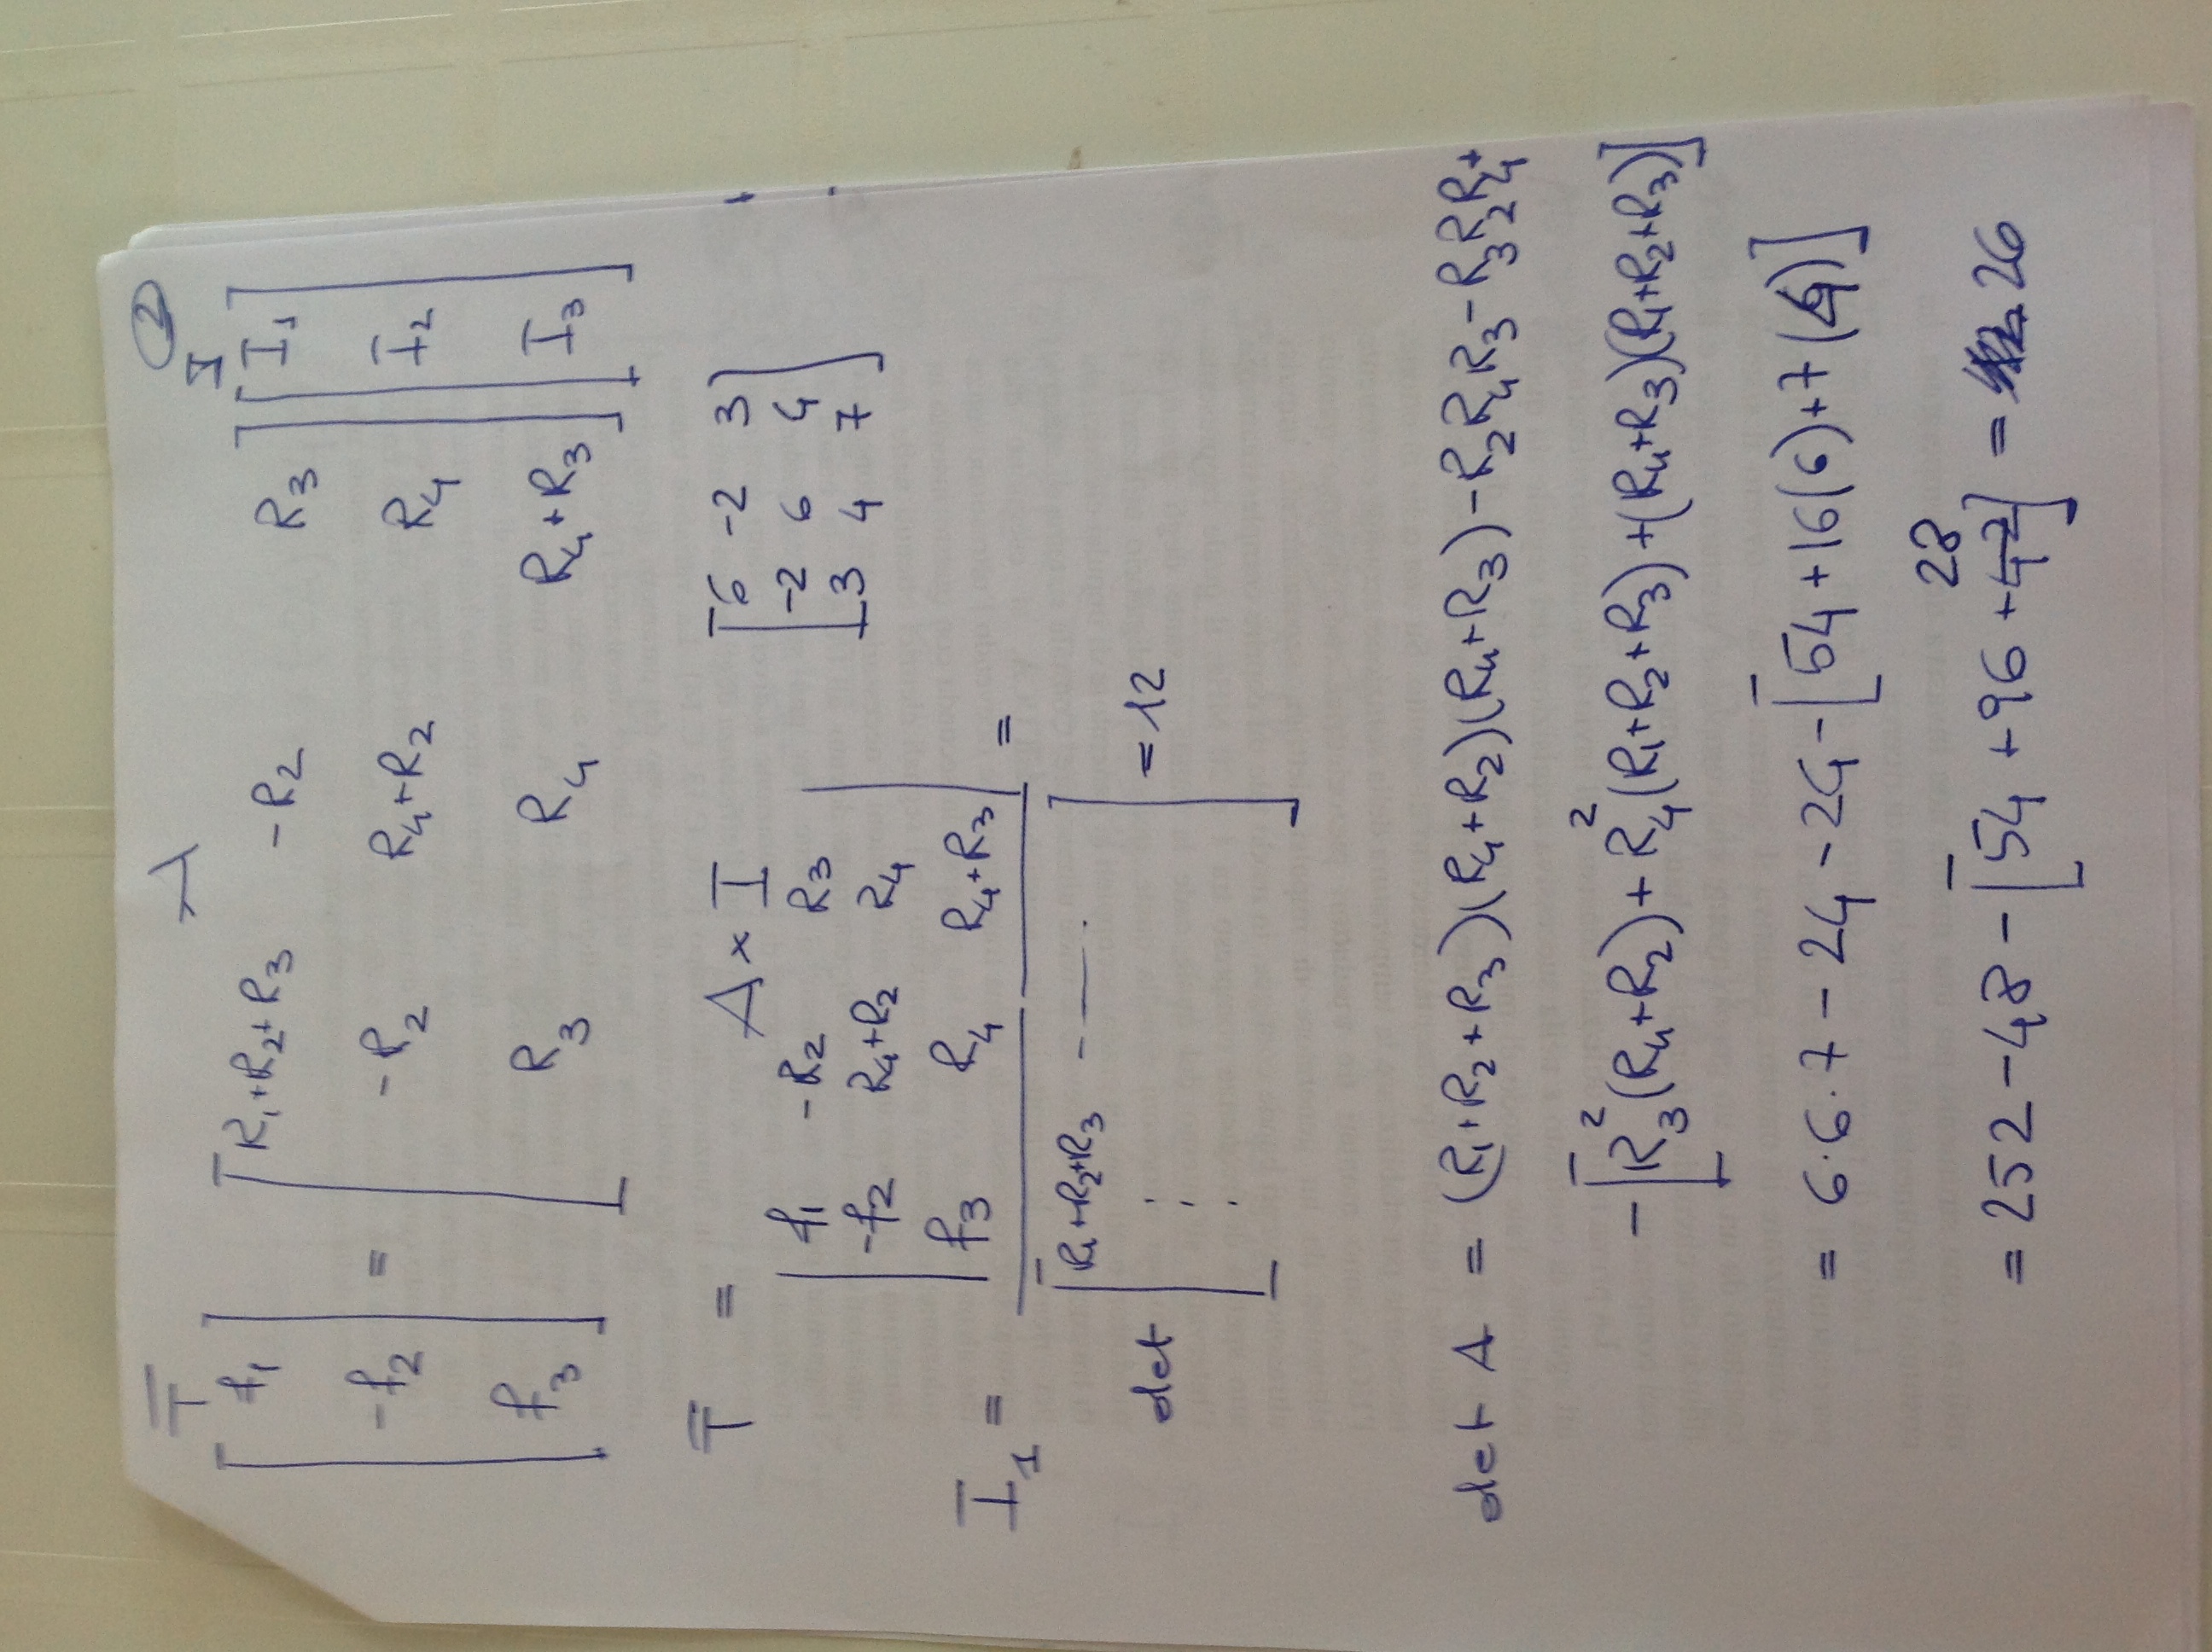 T A 2
I
[ f₁ ] [ R₁+R₂+R₃ -R₂ R₃ ] [ I₁ ]
[ -f₂ ] = [ -R₂ R₄+R₂ R₄ ] [ I₂ ]
[ f₃ ] [ R₃ R₄ R₄+R₃ ] [ I₃ ]
T = A × I
[ 6 -2 3 ]
[ -2 6 4 ]
[ 3 4 7 ]
| f₁ -R₂ R₃ |
| -f₂ R₄+R₂ R₄ |
| f₃ R₄ R₄+R₃ |
I₁ = =
det [ R₁+R₂+R₃ - —— . ⋮ ] = 12
det A = (R₁+R₂+R₃)(R₄+R₂)(R₄+R₃) - R₂R₄R₃ - R₃R₂R₄+
- [R₃²(R₄+R₂) + R₄²(R₁+R₂+R₃) + (R₄+R₃)(R₁+R₂+R₃)]
= 6·6·7 - 24 - 24 - [54 + 16(6) + 7(4)]
28
= 252 - 48 - [54 + 96 + 42] = 26